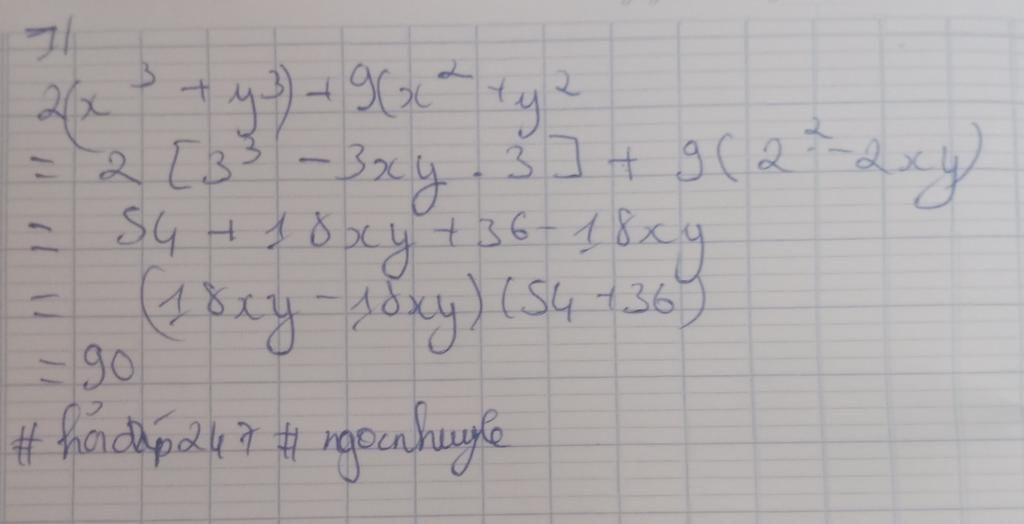 7/
2(x³ + y³) + 9(x² + y²
= 2 [3³ - 3xy . 3] + 9(2² - 2xy)
= 54 + 18xy + 36 - 18xy
= (18xy - 18xy) (54 + 36)
= 90
# hỏiđáp247 # ngocnhuyle